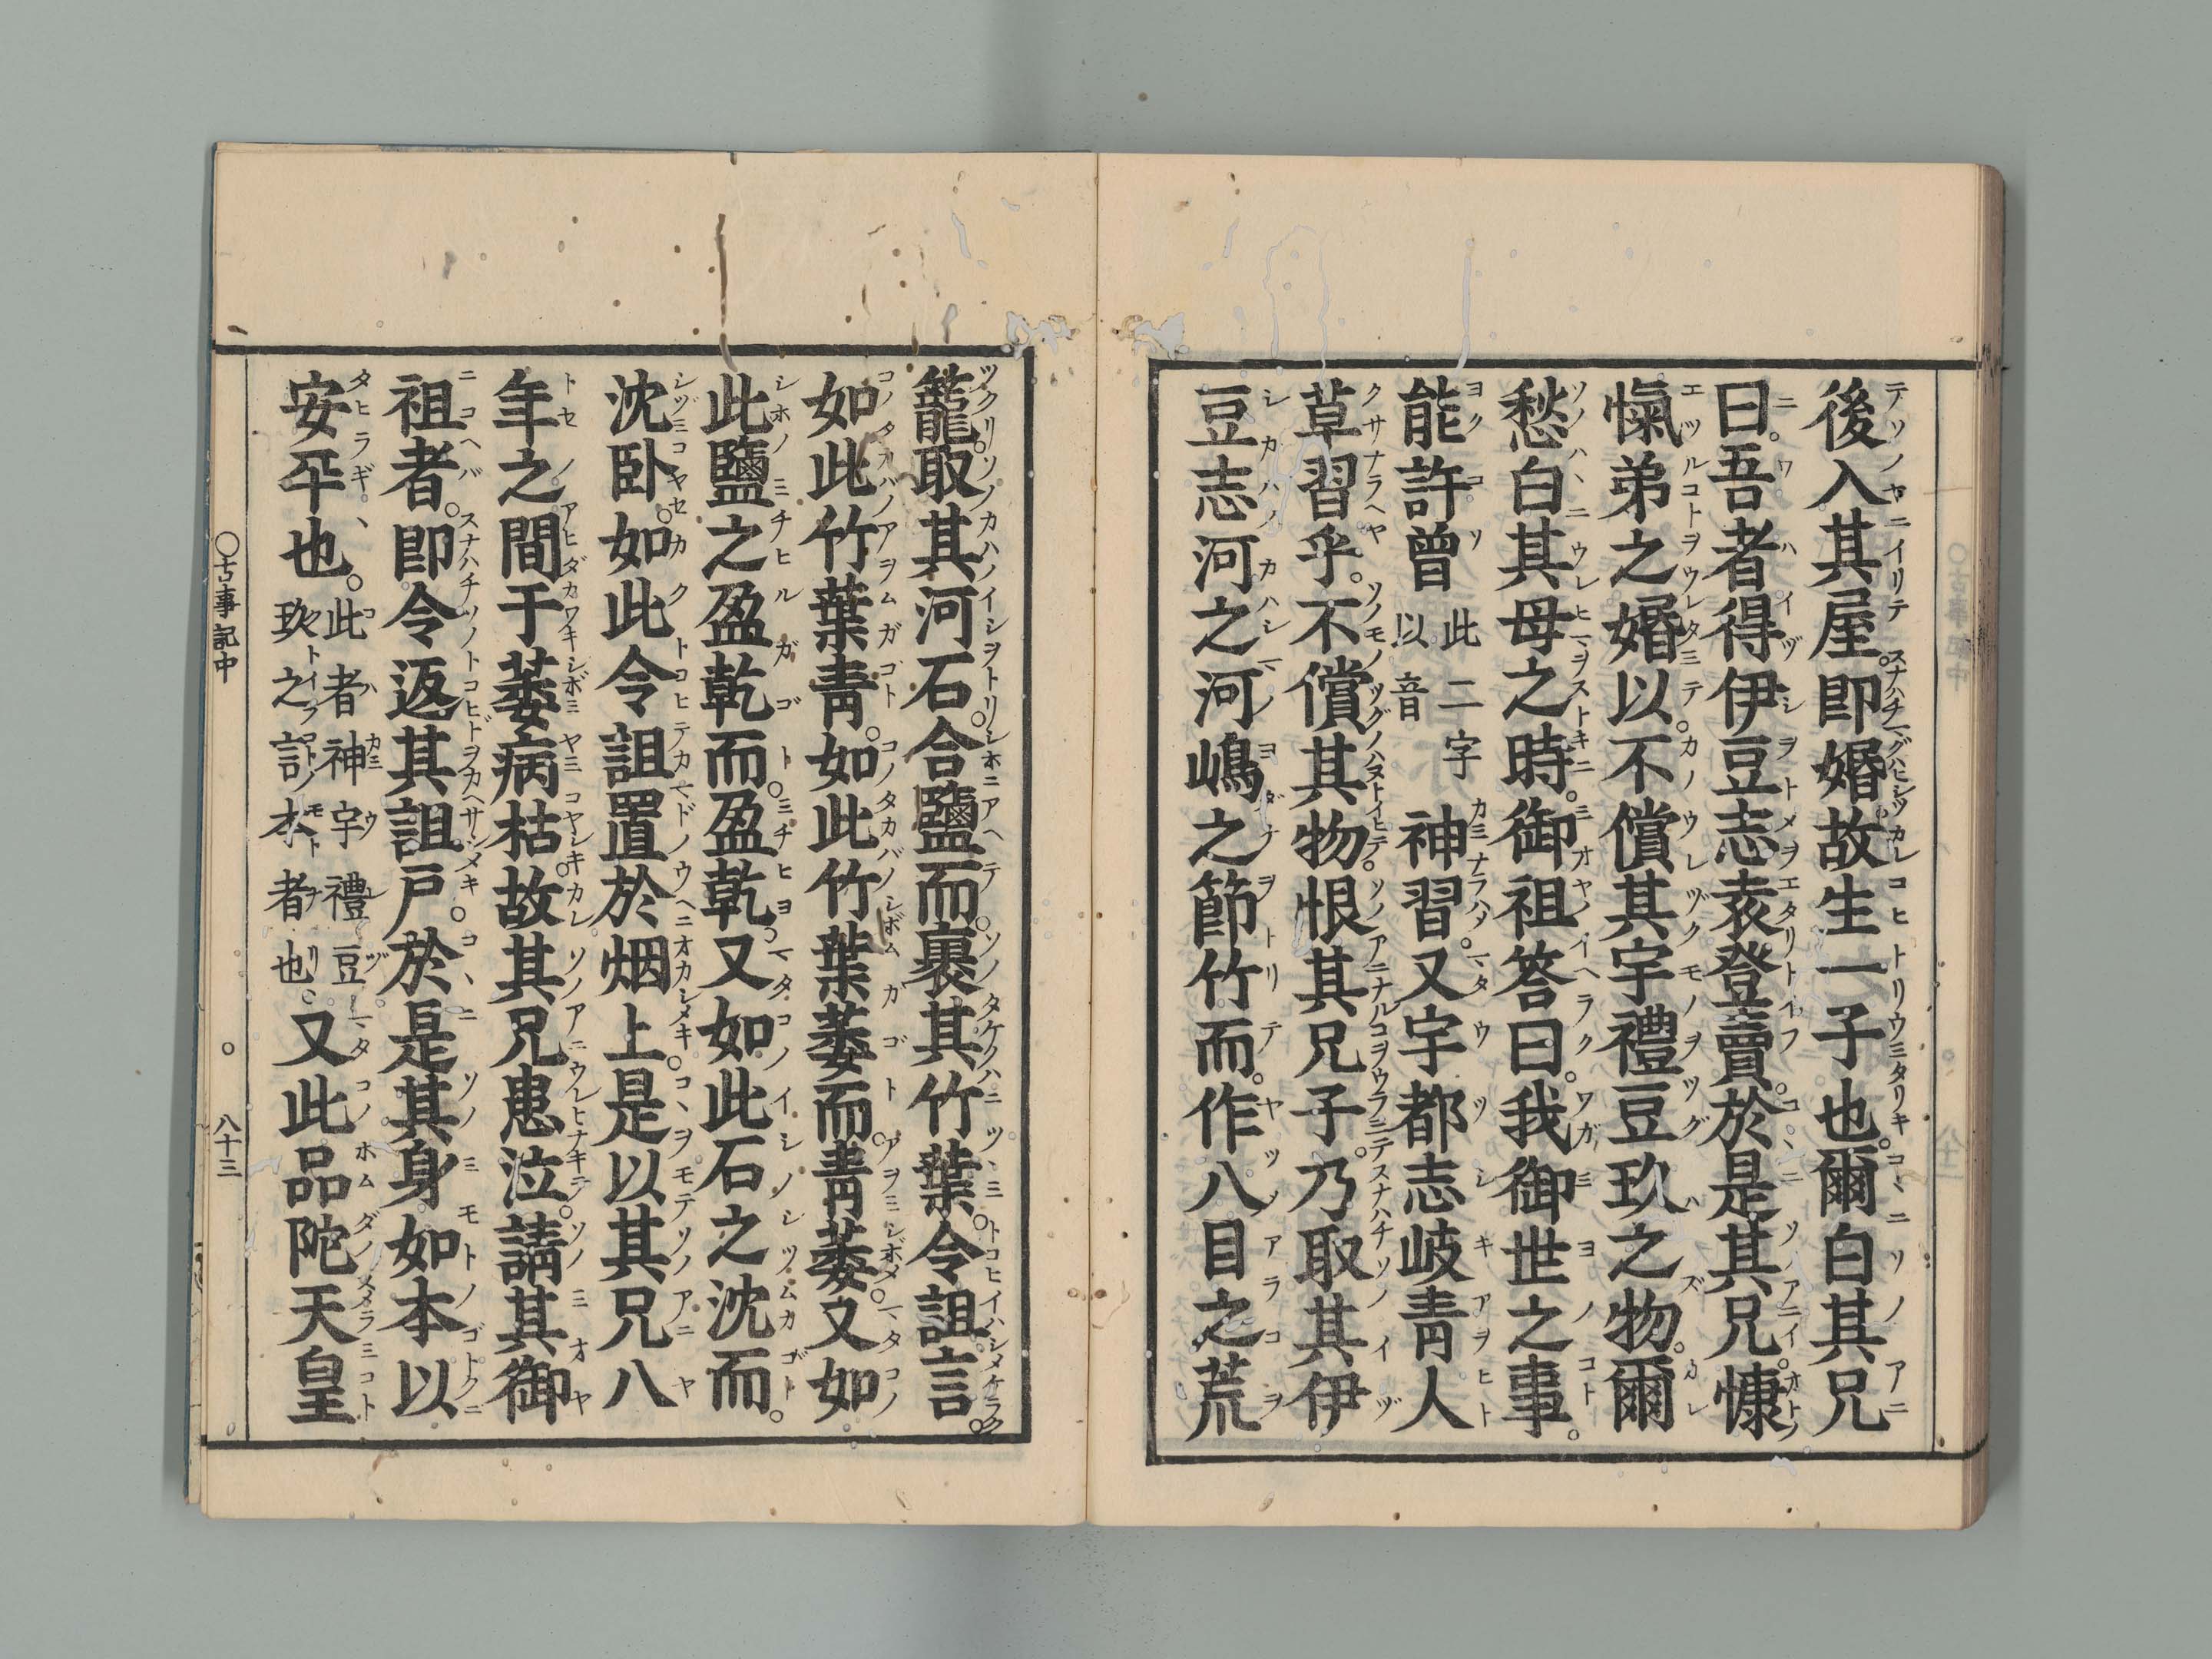 後入其屋。即婚。故生一子也。爾白其兄
曰。吾者得伊豆志袁登賣。於是其兄。慷
愾弟之婚以。不償其宇禮豆玖之物。爾
愁白其母之時。御祖答曰。我御世之事。
能許曾此二字以音神習。又宇都志岐青人
草習乎。不償其物。恨其兄子。乃取其伊
豆志河之河嶋之節竹而。作八目之荒
籠。取其河石。合鹽而。裹其竹葉。令詛言。
如此竹葉青。如此竹葉萎而。青萎。又如
此鹽之盈乾而。盈乾。又如此石之沈而。
沈臥。如此令詛置於烟上。是以其兄八
年之間于萎病枯。故其兄患泣。請其御
祖者。即令返其詛戸。於是其身如本以
安平也。此者神宇禮豆玖之言本者也。又此品陀天皇
○古事記中 ○ 八十三